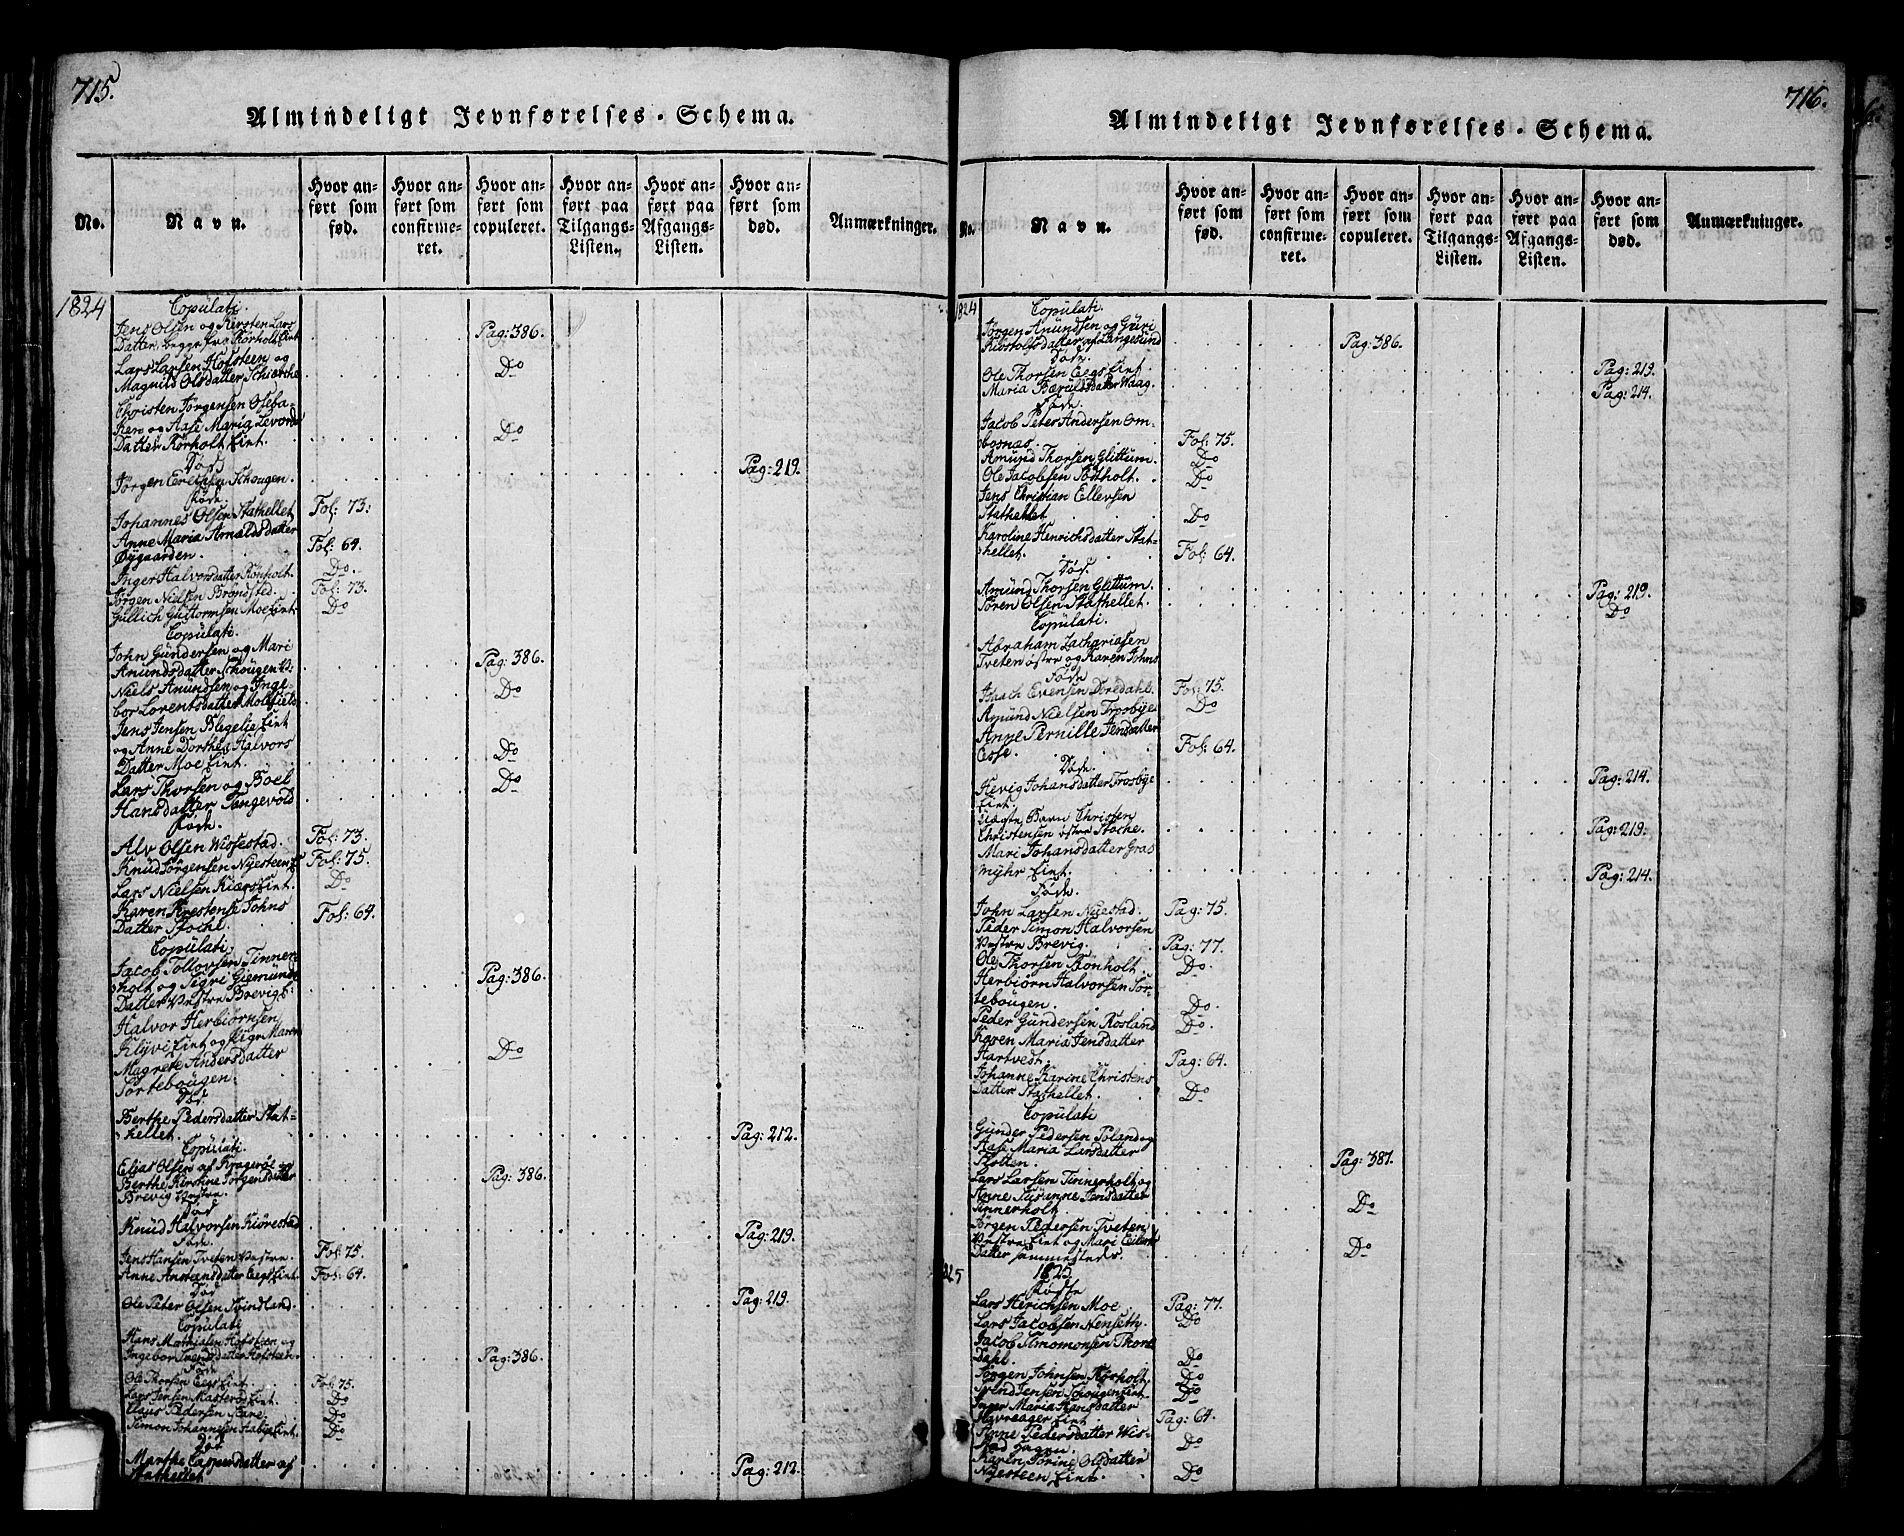 715.
Almindeligt Jevnførelses-Schema.
No.
Navn.
Hvor anført som fød.
Hvor anført som confirmeret.
Hvor anført som copuleret.
Hvor anført paa Tilgangs-Listen.
Hvor anført paa Afgangs-Listen.
Hvor anført som død.
Anmærkninger.
1824 Copulati.
Jens Olsen og Kirsten Lars
Datter, begge fra Rörholt Eint Pag: 386.
Lars Larsen Hofsteen og
Magnild Olsdatter Schierche Do
Christen Jörgensen Oseba-
ken og Aase Maria Levords
Datter Rörholt Eint. Do
Död
Jörgen Erichsen Schougen. Pag: 219.
Föde.
Johannes Olsen Stathellet Fol: 73:
Anne Maria Arnoldsdatter
Öygaarden. Fol: 64.
Inger Halvorsdatter Rönholt. Do.
Jörgen Nielsen Bröndsted. Fol: 73.
Gullich Guttormsen Moe Eint. Do
Copulati.
John Gundersen og Mari
Amundsdatter Schougen Pag: 386.
Niels Amundsen og Inge-
bor Lorentsdatter Do
Jens Jensen Flegelie Eint
og Anne Dorthe Halvors
Datter Moe Eint. Do
Lars Thorsen og Boel
Hansdatter Tangevold Do
Föde.
Alv Olsen Wissestad. Fol: 73.
Knud Jörgensen Nysteen E Fol: 75.
Lars Nielsen Kiærs Eint. Do
Karen Krestense Johns
Datter Stochl. Fol: 64.
Copulati.
Jacob Tollovsen Tinner-
holt og Sigri Giemunds
Datter Vestre Brevig. Pag: 386.
Halvor Herbiörnsen
Klyvi Eint og Pige Maren
Magrete Andersdatter Do
Sortebougen.
Död.
Berthe Pedersdatter Stat-
hellet. Pag: 212.
Copulati.
Elias Olsen af Kragerøe og
Berthe Kirstine Jörgensdatter Pag: 386.
Brevig Vestre.
Död
Knud Halvorsen Kiörestad Pag: 219.
Föde.
Jens Hansen Tveten Vestre. Fol: 75.
Anne Anstensdatter Eegs Eint. Fol: 64.
Död
Ole Peter Olsen Svindland. Pag: 219.
Copulati
Hans Mathiasen Hofsteen og
Ingebor Svendsdatter Hofsteen Pag: 386.
Föde
Ole Thorsen Eegs Eint. Fol: 75.
Lars Jensen Masterød Eint. Do
Claus Pedersen Aare. Do
Simon Johannesen Habige Eint. Do
Död
Marthe Caspersdatter af
Stathellet Pag: 212.
716.
Almindeligt Jevnførelses-Schema.
No.
Navn.
Hvor anført som fød.
Hvor anført som confirmeret.
Hvor anført som copuleret.
Hvor anført paa Tilgangs-Listen.
Hvor anført paa Afgangs-Listen.
Hvor anført som død.
Anmærkninger.
1824 Copulati.
Jörgen Amundsen og Guri
Kittolfsdatter af Langesund Pag: 386.
Döde.
Ole Thorsen Eegs Eint Pag: 219.
Maria Bærulsdatter Waag. Pag: 214.
Föde.
Jacob Peter Andersen Om-
bosnæs. Fol: 75.
Amund Thorsen Glittum. Do
Ole Jacobsen Rörholt. Do
Jens Christian Ellevsen
Stathellet Do
Karoline Henrichsdatter Stat-
hellet. Fol: 64.
Död.
Amund Thorsen Glittum. Pag: 219.
Sören Olsen Stathellet. Do
Copulati.
Abraham Zachariasen
Tveten östre og Karen Johns
Föde
Isach Evensen Doredahl. Fol: 75.
Amund Nielsen Trosbye Do
Anne Pernille Jensdatter
Esse. Fol: 64.
Döde.
Hevig Johansdatter Trosbye
Eint. Pag: 214.
Uägte Barn Christen
Christensen östre Stoche. Pag: 219:
Mari Johansdatter Gras
myhr Eint. Pag: 214.
Föde.
John Larsen Nyestad. Pag: 75.
Peder Simon Halvorsen
Vestre Brevig. Pag: 77.
Ole Thorsen Rönholt. Do.
Herbiörn Halvorsen Sor-
tebougen. Do.
Peder Gundersen Rosland Do.
Karen Maria Jensdatter
Hartvedt. Pag: 64.
Johanne Karine Christens
Datter Stathellet. Do
Copulati
Gunder Pedersen Poland og
Aase Maria Larsdatter
Slotten. Pag: 387.
Lars Larsen Tinnerholt og
Anne Susanne Jensdatter Do
Tinnerholt.
Jörgen Pedersen Tveten
Vestre Eint og Mari Eilerts
Datter sammesteds. Do
1825
Födte
Lars Herichsen Moe Pag: 77.
Lars Jacobsen Nenseth. Do
Jacob Simomonsen Thore
Dahl. Do
Jörgen Johnsen Rörholt. Do
Svend Jensen Schougen Eint. Do
Inger Maria Hansdatter
Havreager Eint Pag: 64.
Anne Pedersdatter Wis-
stad Hagen. Do
Karen Torine Olsdatter
Nysteen Eint. Do